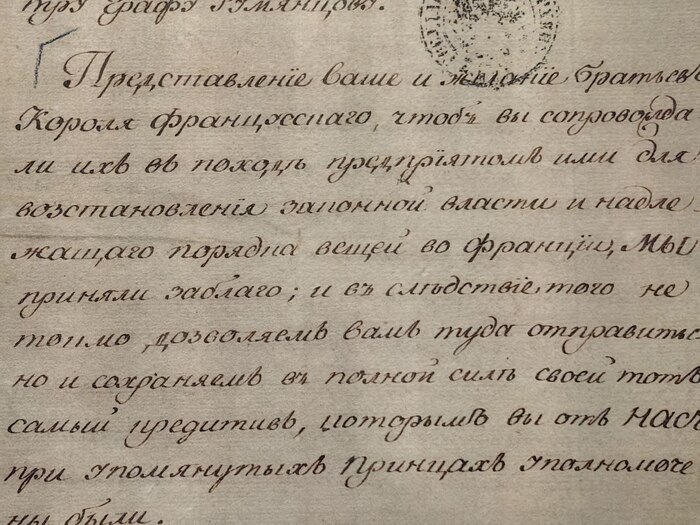 графу Румянцову.
Представленіе ваше и желаніе братьевъ
Короля французскаго, чтобъ вы сопровожда
ли ихъ въ походѣ предпріятомъ ими для
возстановленія законной власти и надле
жащаго порядка вещей во франціи, МЫ
приняли заблаго; и въ слѣдствіе того не
токмо дозволяемъ вамъ туда отправиться
но и сохраняемъ въ полной силѣ своей тотъ
самый кредитивъ, которымъ вы отъ НАСЪ
при упомянутыхъ Принцахъ уполномоче
ны были.